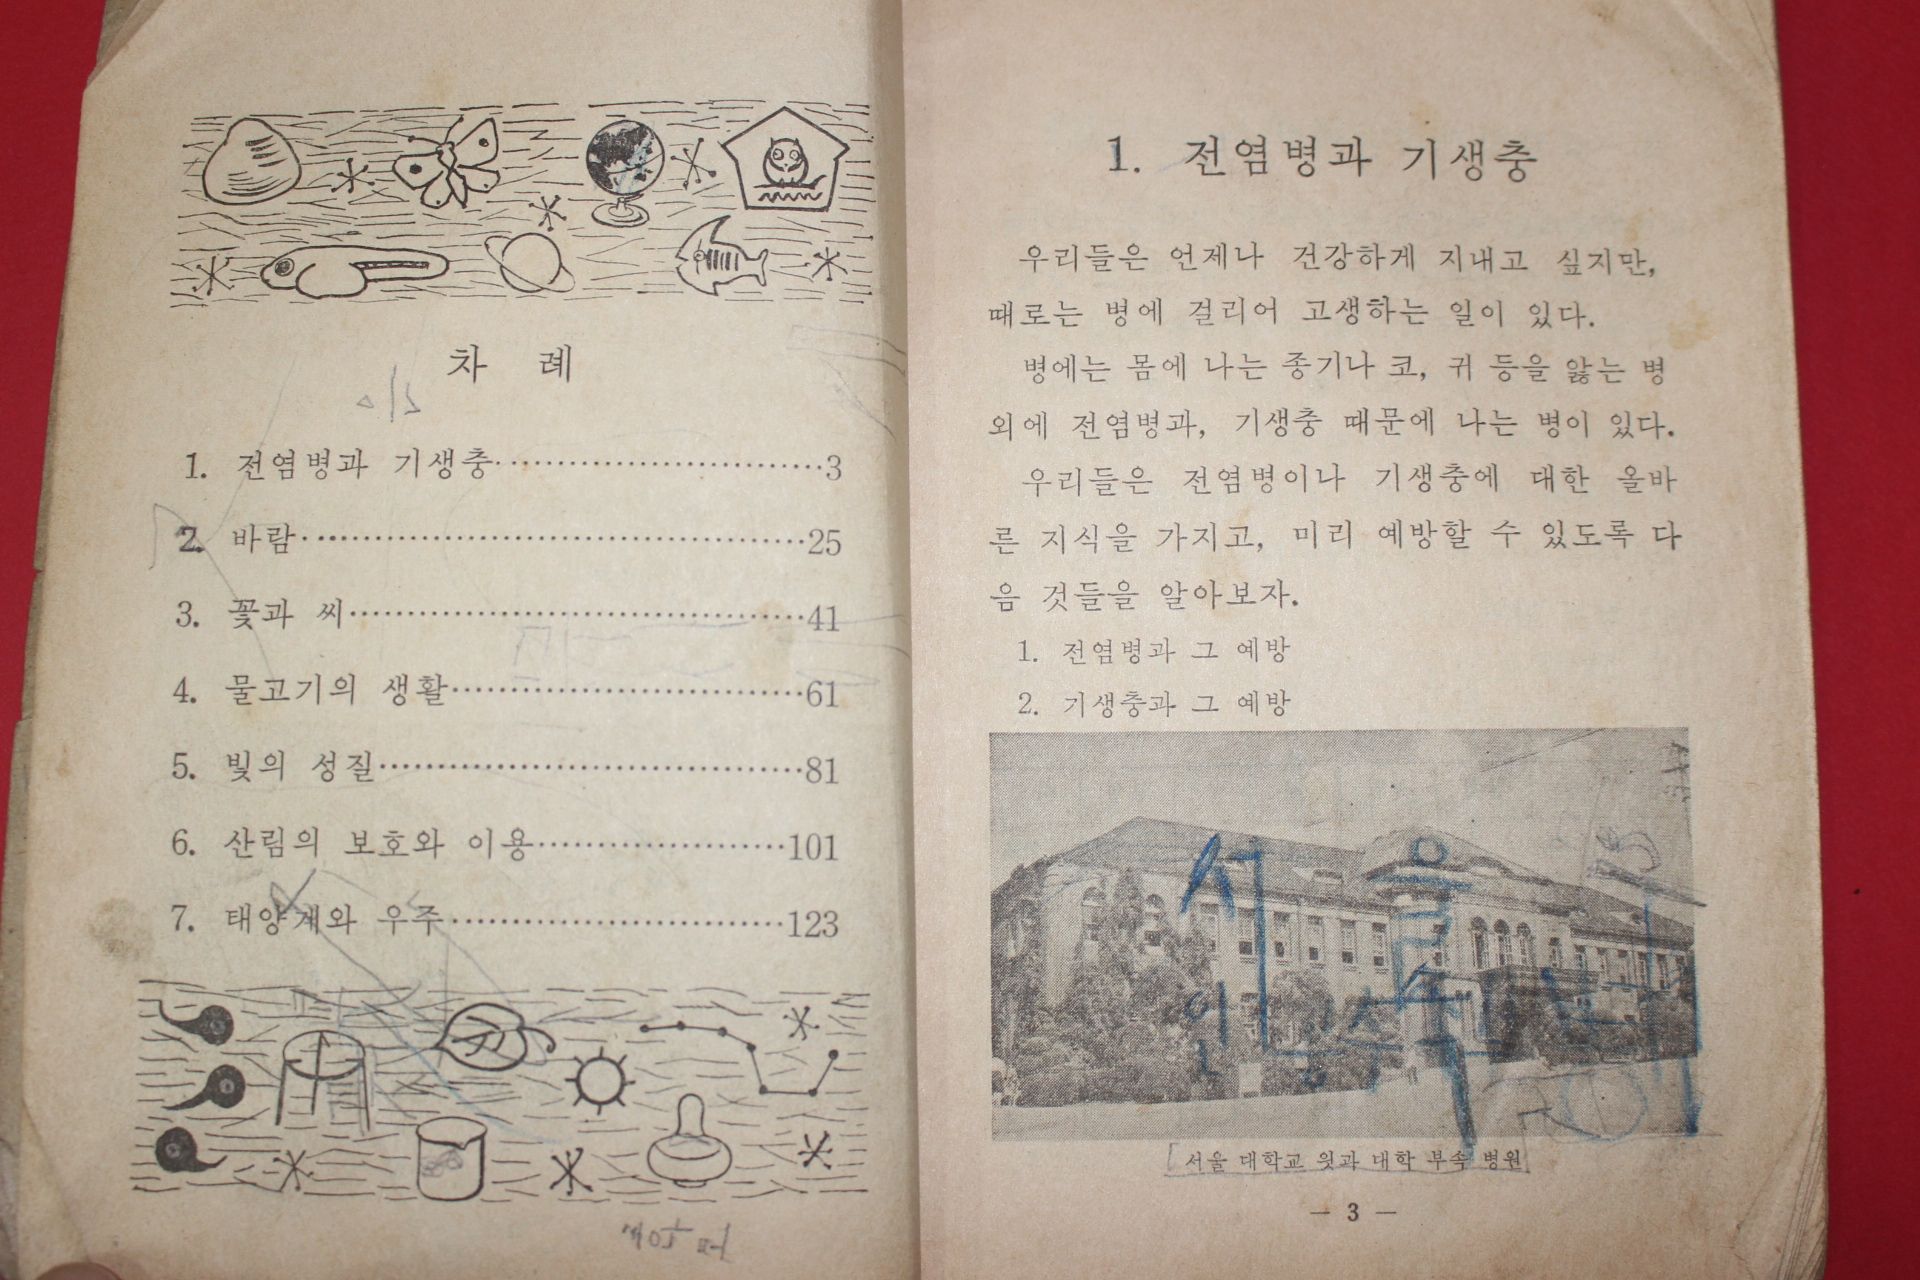 차 례
1. 전염병과 기생충……………………………3
2. 바람……………………………25
3. 꽃과 씨……………………………41
4. 물고기의 생활……………………………61
5. 빛의 성질……………………………81
6. 산림의 보호와 이용……………………101
7. 태양계와 우주……………………………123
1. 전염병과 기생충
우리들은 언제나 건강하게 지내고 싶지만,
때로는 병에 걸리어 고생하는 일이 있다.
병에는 몸에 나는 종기나 코, 귀 등을 앓는 병
외에 전염병과, 기생충 때문에 나는 병이 있다.
우리들은 전염병이나 기생충에 대한 올바
른 지식을 가지고, 미리 예방할 수 있도록 다
음 것들을 알아보자.
1. 전염병과 그 예방
2. 기생충과 그 예방
서울
서울 대학교 의과 대학 부속 병원
— 3 —